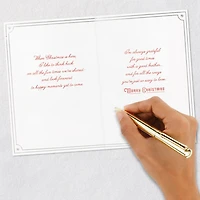 When Christmas is here,
I like to think back
on all the fun times we've shared
and look forward
to happy moments yet to come.
I'm always grateful
for good times
with a great brother,
and for all the ways
you're just so easy to love.
Merry Christmas